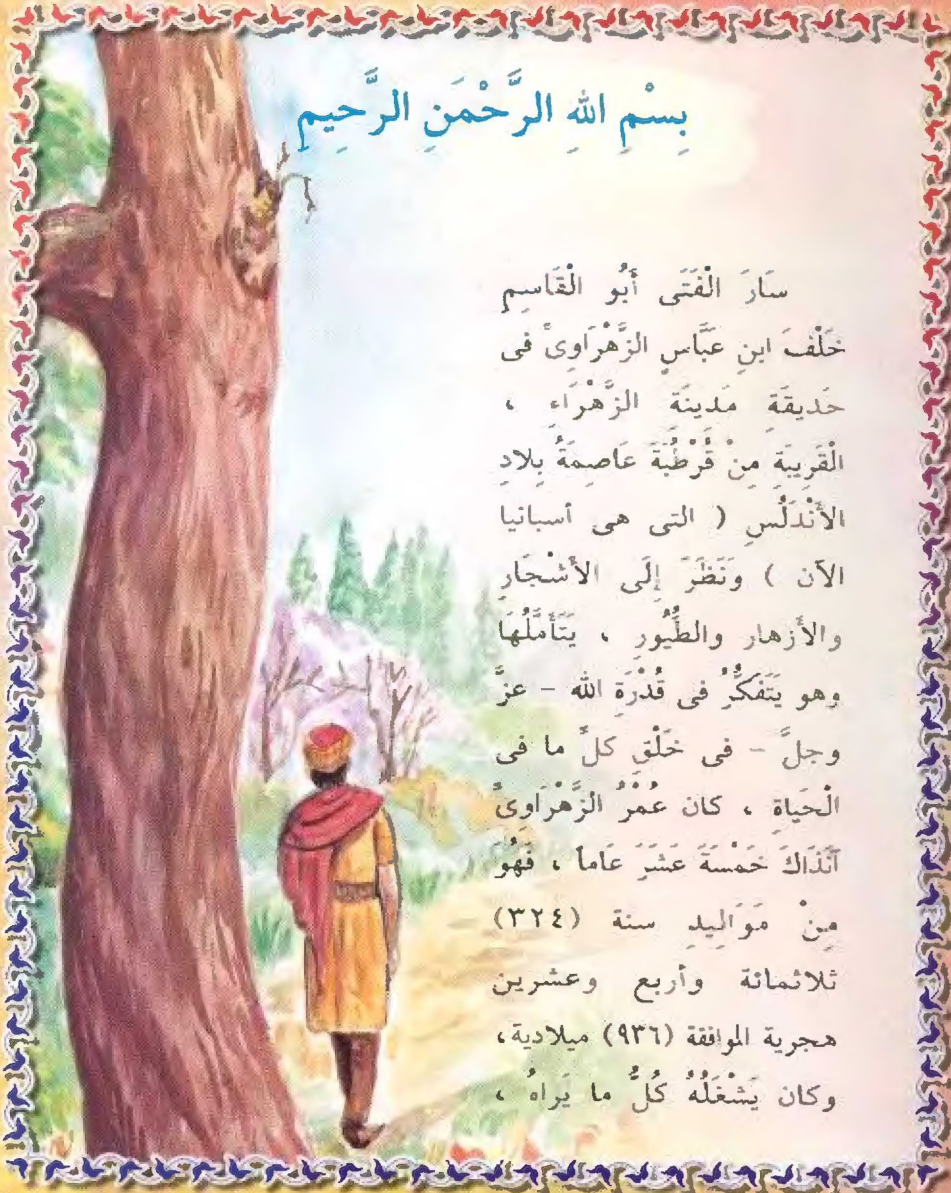 بِسْمِ اللهِ الرَّحْمَنِ الرَّحِيمِ
سَارَ الْفَتَى أَبُو الْقَاسِمِ
خَلْفَ ابنِ عَبَّاسٍ الزَّهْرَاوِىّ فى
حَدِيقَةِ مَدِينَةِ الزَّهْرَاءِ ،
الْقَرِيبَةِ مِنْ قُرْطُبَةَ عَاصِمَةُ بِلادِ
الأَنْدَلُسِ ( التى هى أسبانيا
الآن ) وَنَظَرَ إِلَى الأَشْجَارِ
والأَزهار والطُّيُورِ ، يَتَأَمَّلُهَا
وهو يَتَفَكَّرُ فى قُدْرَةِ الله - عزَّ
وجلَّ - فى خَلْقِ كلِّ ما فى
الْحَيَاةِ ، كان عُمْرُ الزَّهْرَاوِىِّ
آنَذَاكَ خَمْسَةَ عَشَرَ عَاماً ، فَهُوَ
مِنْ مَوَالِيدِ سنة (٣٢٤)
ثلاثمائة وأربع وعشرين
هجرية الموافقة (٩٣٦) ميلادية،
وكان يَشْغَلُهُ كُلُّ ما يَراهُ ،